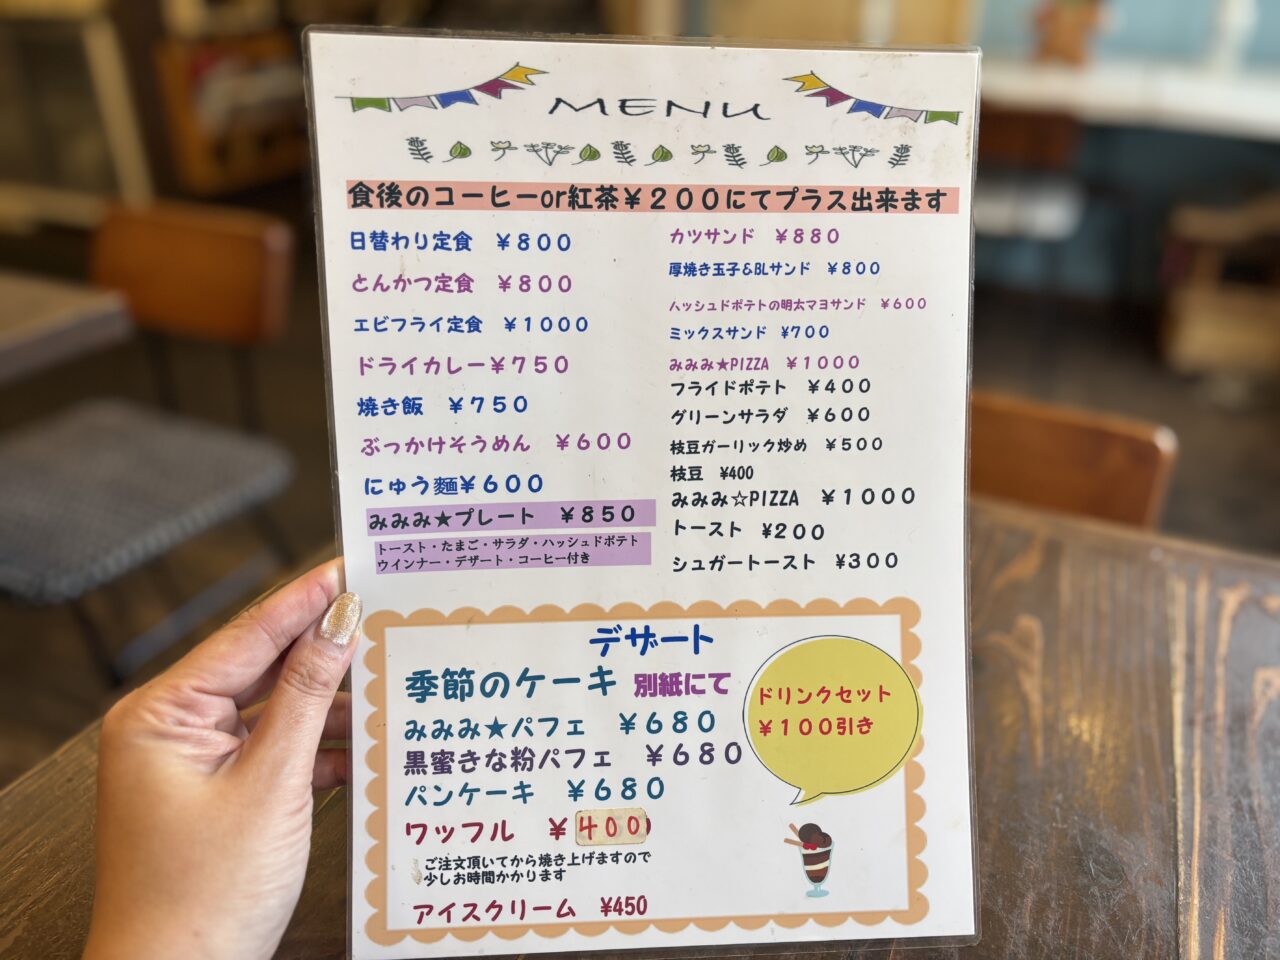 MENU
食後のコーヒーor紅茶￥２００にてプラス出来ます
日替わり定食　￥８００
とんかつ定食　￥８００
エビフライ定食　￥１０００
ドライカレー￥７５０
焼き飯　￥７５０
ぶっかけそうめん　￥６００
にゅう麵￥６００
みみみ★プレート　￥８５０
トースト・たまご・サラダ・ハッシュドポテト
ウインナー・デザート・コーヒー付き
カツサンド　￥８８０
厚焼き玉子＆BLサンド　￥８００
ハッシュドポテトの明太マヨサンド　￥６００
ミックスサンド　¥７００
みみみ★PIZZA　￥１０００
フライドポテト　￥４００
グリーンサラダ　￥６００
枝豆ガーリック炒め　￥５００
枝豆　¥400
みみみ☆PIZZA　￥１０００
トースト　¥２００
シュガートースト　¥３００
デザート
季節のケーキ　別紙にて
みみみ★パフェ　￥６８０
黒蜜きな粉パフェ　￥６８０
パンケーキ　￥６８０
ワッフル　￥４００
ご注文頂いてから焼き上げますので
少しお時間かかります
アイスクリーム　¥450
ドリンクセット
￥１００引き